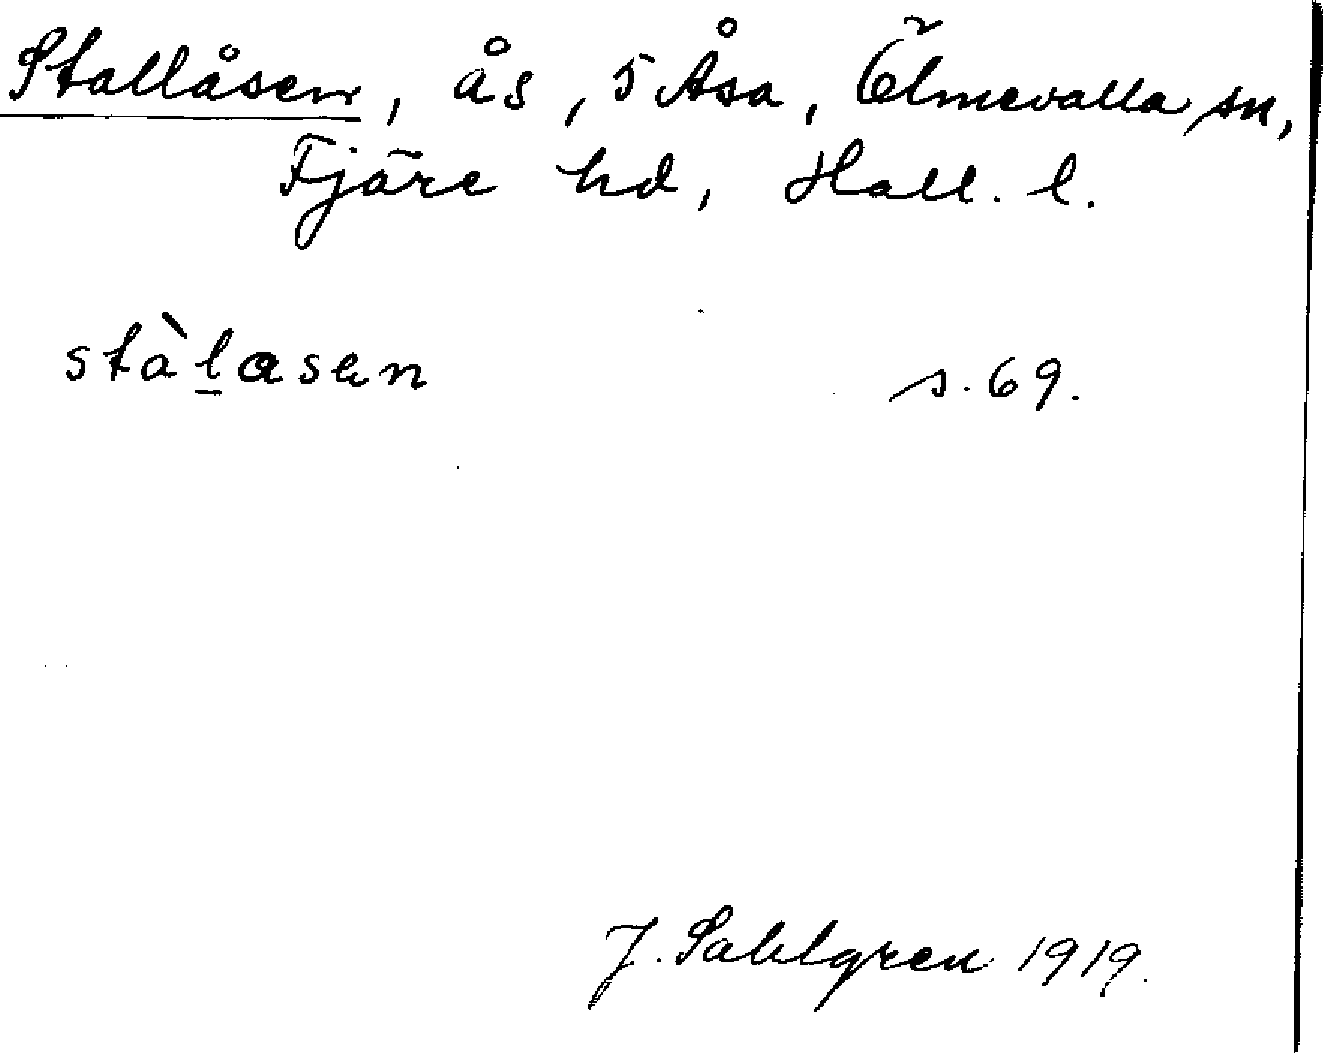 Stallåsen, ås, 5 Åsa, Ölmevalla sn,
Fjäre hd, Hall. l.
stàlasen s. 69.
J. Sahlgren 1919.